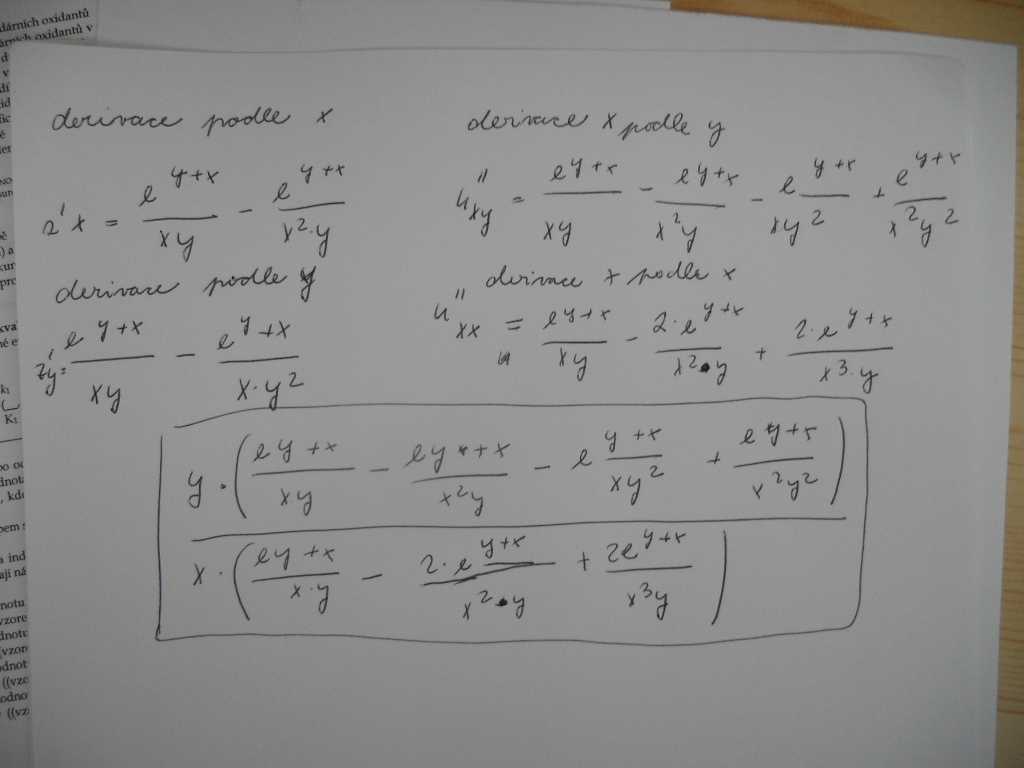 dárních oxidantů
oxidantů v
derivace podle x
z'x = e^(y+x)/(xy) - e^(y+x)/(x²·y)
derivace podle y
z'y = e^(y+x)/(xy) - e^(y+x)/(x·y²)
derivace x podle y
u''xy = e^(y+x)/(xy) - e^(y+x)/(x²y) - e^(y+x)/(xy²) + e^(y+x)/(x²y²)
derivace x podle x
u''xx = e^(y+x)/(xy) - 2·e^(y+x)/(x²·y) + 2·e^(y+x)/(x³·y)
y·(e^(y+x)/(xy) - e^(y+x)/(x²y) - e^(y+x)/(xy²) + e^(y+x)/(x²y²))
x·(e^(y+x)/(x·y) - 2·e^(y+x)/(x²·y) + 2e^(y+x)/(x³y))